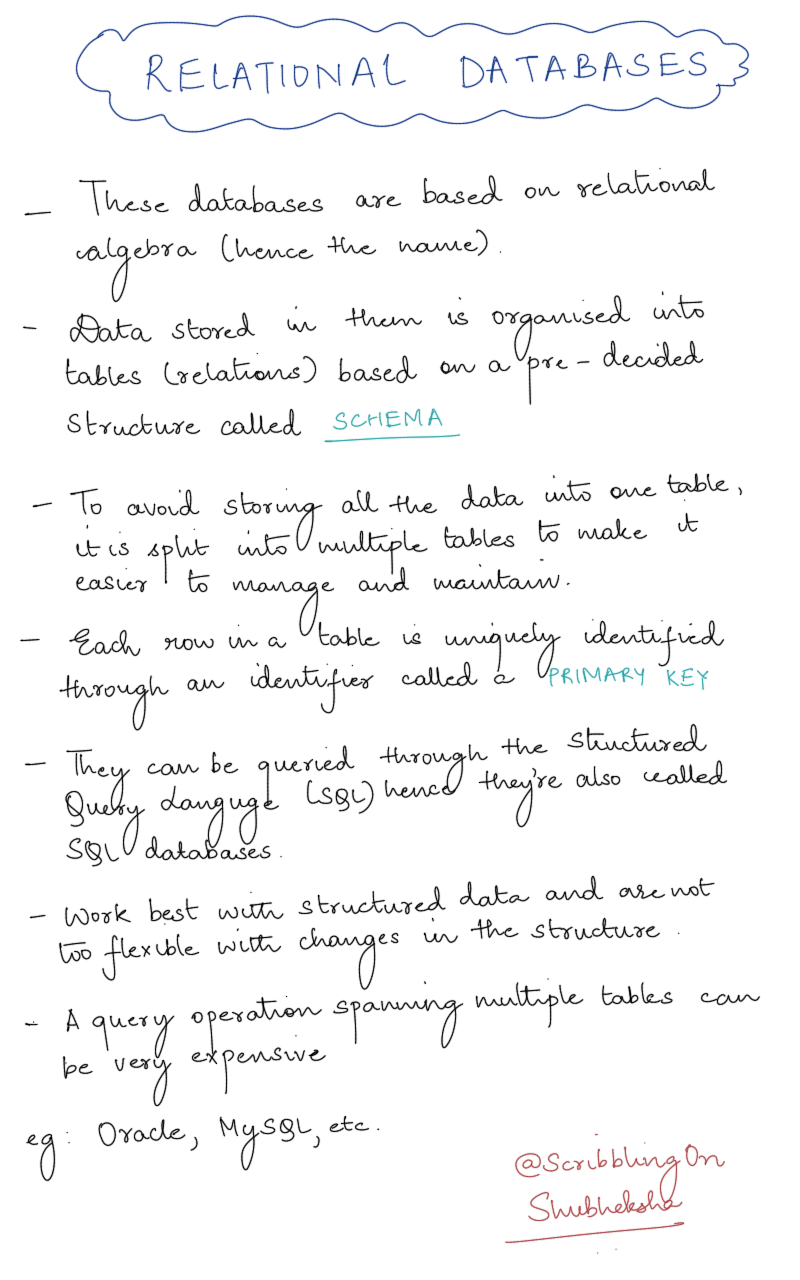 RELATIONAL DATABASES
- These databases are based on relational
algebra (hence the name).
- Data stored in them is organised into
tables (relations) based on a pre-decided
structure called SCHEMA
- To avoid storing all the data into one table,
it is split into multiple tables to make it
easier to manage and maintain.
- Each row in a table is uniquely identified
through an identifier called a PRIMARY KEY
- They can be queried through the Structured
Query Languge (SQL) hence they're also called
SQL databases.
- Work best with structured data and are not
too flexible with changes in the structure.
- A query operation spanning multiple tables can
be very expensive
eg: Oracle, MySQL, etc.
@ScribblingOn
Shubheksha